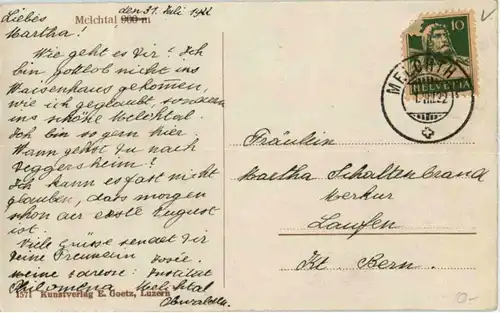 den 31. Juli 1922
Melchtal 900 m
Liebes
Martha!
Wie geht es Dir? Ich
bin gottlob nicht ins
Waisenhaus gekommen,
wie ich geglaubt, sondern
ins schöne Melchtal.
Ich bin so gern hier.
Wann gehst Du nach
Deggersheim?
Ich kann es fast nicht
glauben, dass morgen
schon der erste August
ist.
Viele Grüsse sendet Dir
Deine Freundin Josie.
meine adresse: Institut
Philomena Melchtal
Obwalden.
1571 Kunstverlag E. Goetz, Luzern
10
HELVETIA
MELCHTH
VIII.22
Fräulein
Martha Schaltenbrand
Merkur
Laufen
Kt Bern.